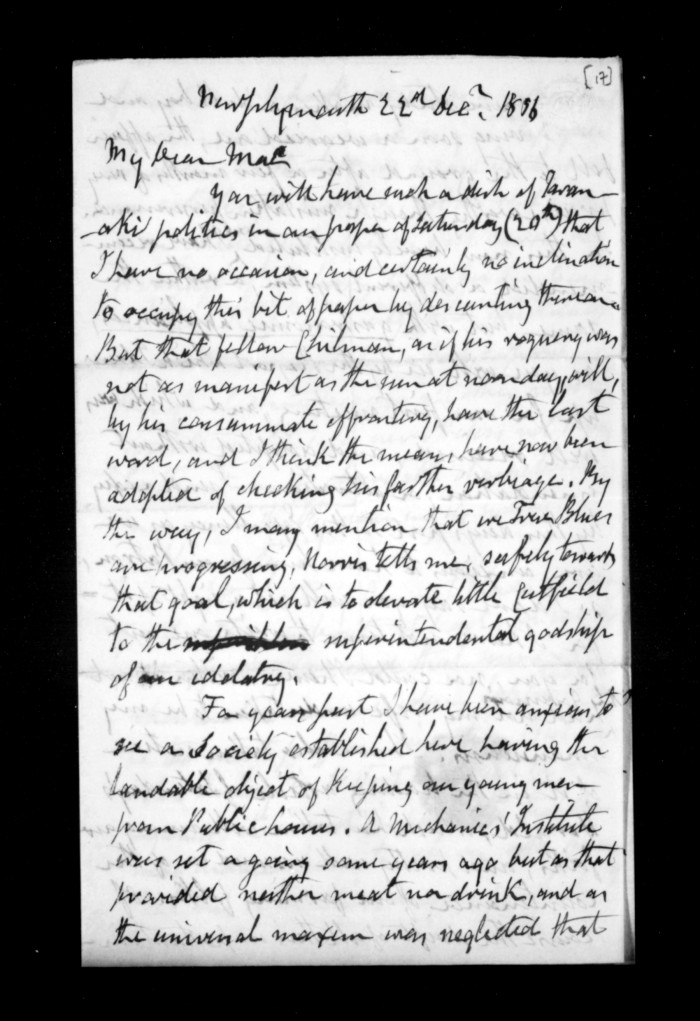 [17]
New Plymouth 22nd Decr. 1856
My Dear Mac
You will have such a dish of Taran-
-aki politics in our paper of Saturday (20th) that
I have no occasion, and certainly no inclination
to occupy this bit of paper by descanting thereon.
But that fellow Chilman, as if his roguery was
not as manifest as the sun at noonday, will,
by his consummate effrontery, have the last
word, and I think the means have now been
adopted of checking his farther verbiage. By
the way, I may mention that we True Blues
are progressing, Norris tells me, safely towards
that goal, which is to elevate little Cutfield
to the superintendental godship
of our idolatry.
For years past I have been anxious to
see a Society established here having the
laudable object of keeping our young men
from Public houses. A Mechanics' Institute
was set a going some years ago but as that
provided neither meat nor drink, and as
the universal maxim was neglected that